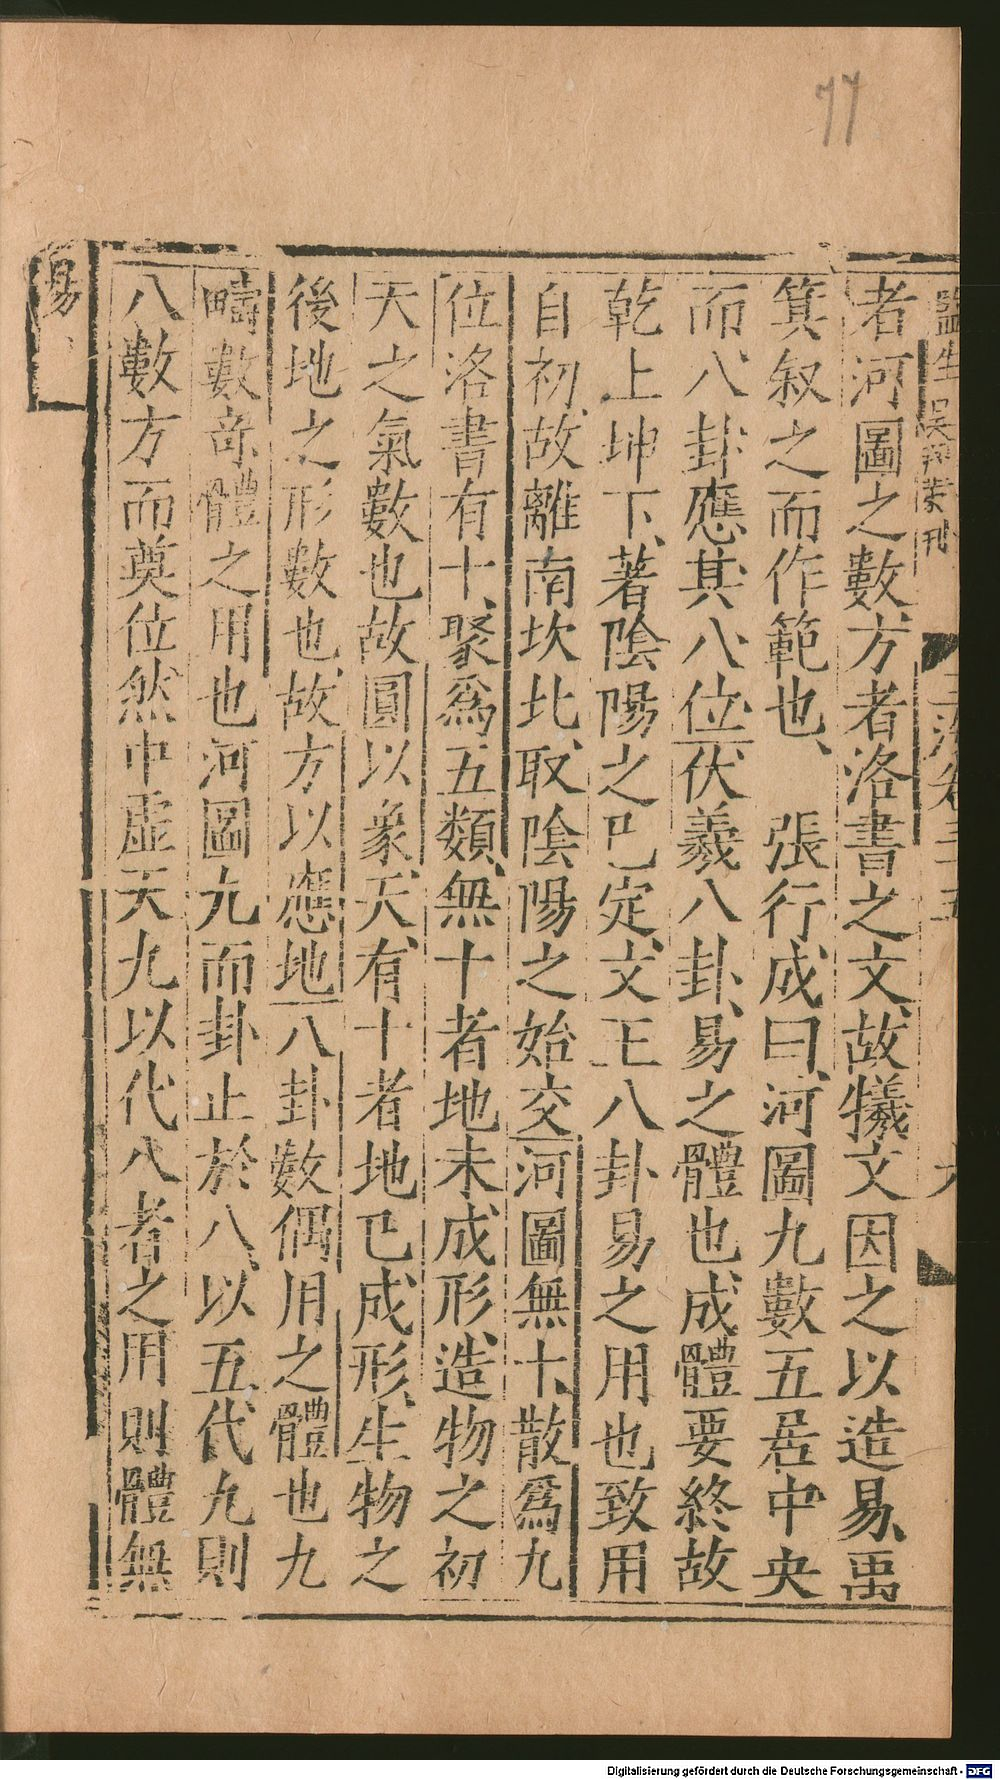 77
監生吳
刊
卷三十五
六
者河圖之數方者洛書之文、故犧文因之以造易、禹
箕叙之而作範也、　張行成曰、河圖九數五居中央
而八卦應其八位伏羲八卦、易之體也成體要終故
乾上坤下、著陰陽之已定、文王八卦易之用也致用
自初、故離南坎北、取陰陽之始交河圖無十、散爲九
位洛書有十、聚爲五類、無十者地未成形、造物之初
天之氣數也故圓以象天、有十者地已成形、生物之
後地之形數也、故方以應地八卦數偶用之體也九
疇數奇體之用也河圖九而卦止於八、以五代九則
八數方而奠位然中虛天九以代八者之用則體無
易、
Digitalisierung gefördert durch die Deutsche Forschungsgemeinschaft - DFG